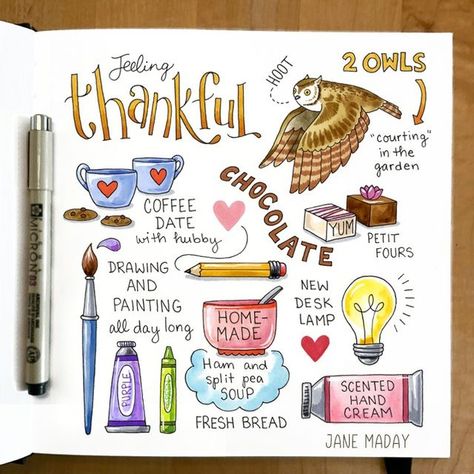 Feeling
thankful
HOOT
2 OWLS
"courting"
in the
garden
CHOCOLATE
COFFEE
DATE
with hubby
YUM
PETIT
FOURS
DRAWING
AND
PAINTING
all day long
HOME-
MADE
Ham and
split pea
SOUP
FRESH BREAD
NEW
DESK
LAMP
PURPLE
SCENTED
HAND
CREAM
JANE MADAY
MICRON 03